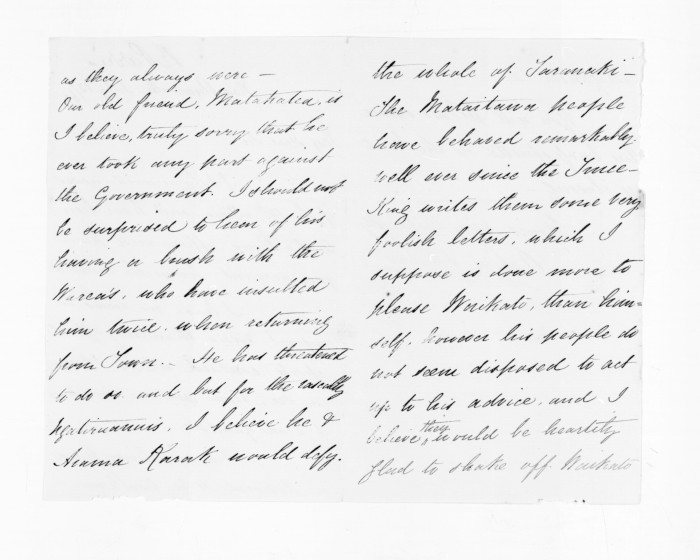 as they always were —
Our old friend, Matakatea, is
I believe, truly sorry that he
ever took any part against
the Government. I should not
be surprised to hear of his
having a brush with the
Warea's, who have insulted
him twice, when returning
from Town. — He has threatened
to do so and but for the rascally
Ngatiruanuis, I believe he &
Arama Karaka would defy.
the whole of Taranaki —
The Mataitawa people
have behaved remarkably
well ever since the Truce —
King writes them some very
foolish letters, which I
suppose is done more to
please Waikato, than him=
self, however his people do
not seem disposed to act
up to his advice, and I
believe, they would be heartily
glad to shake off Waikato